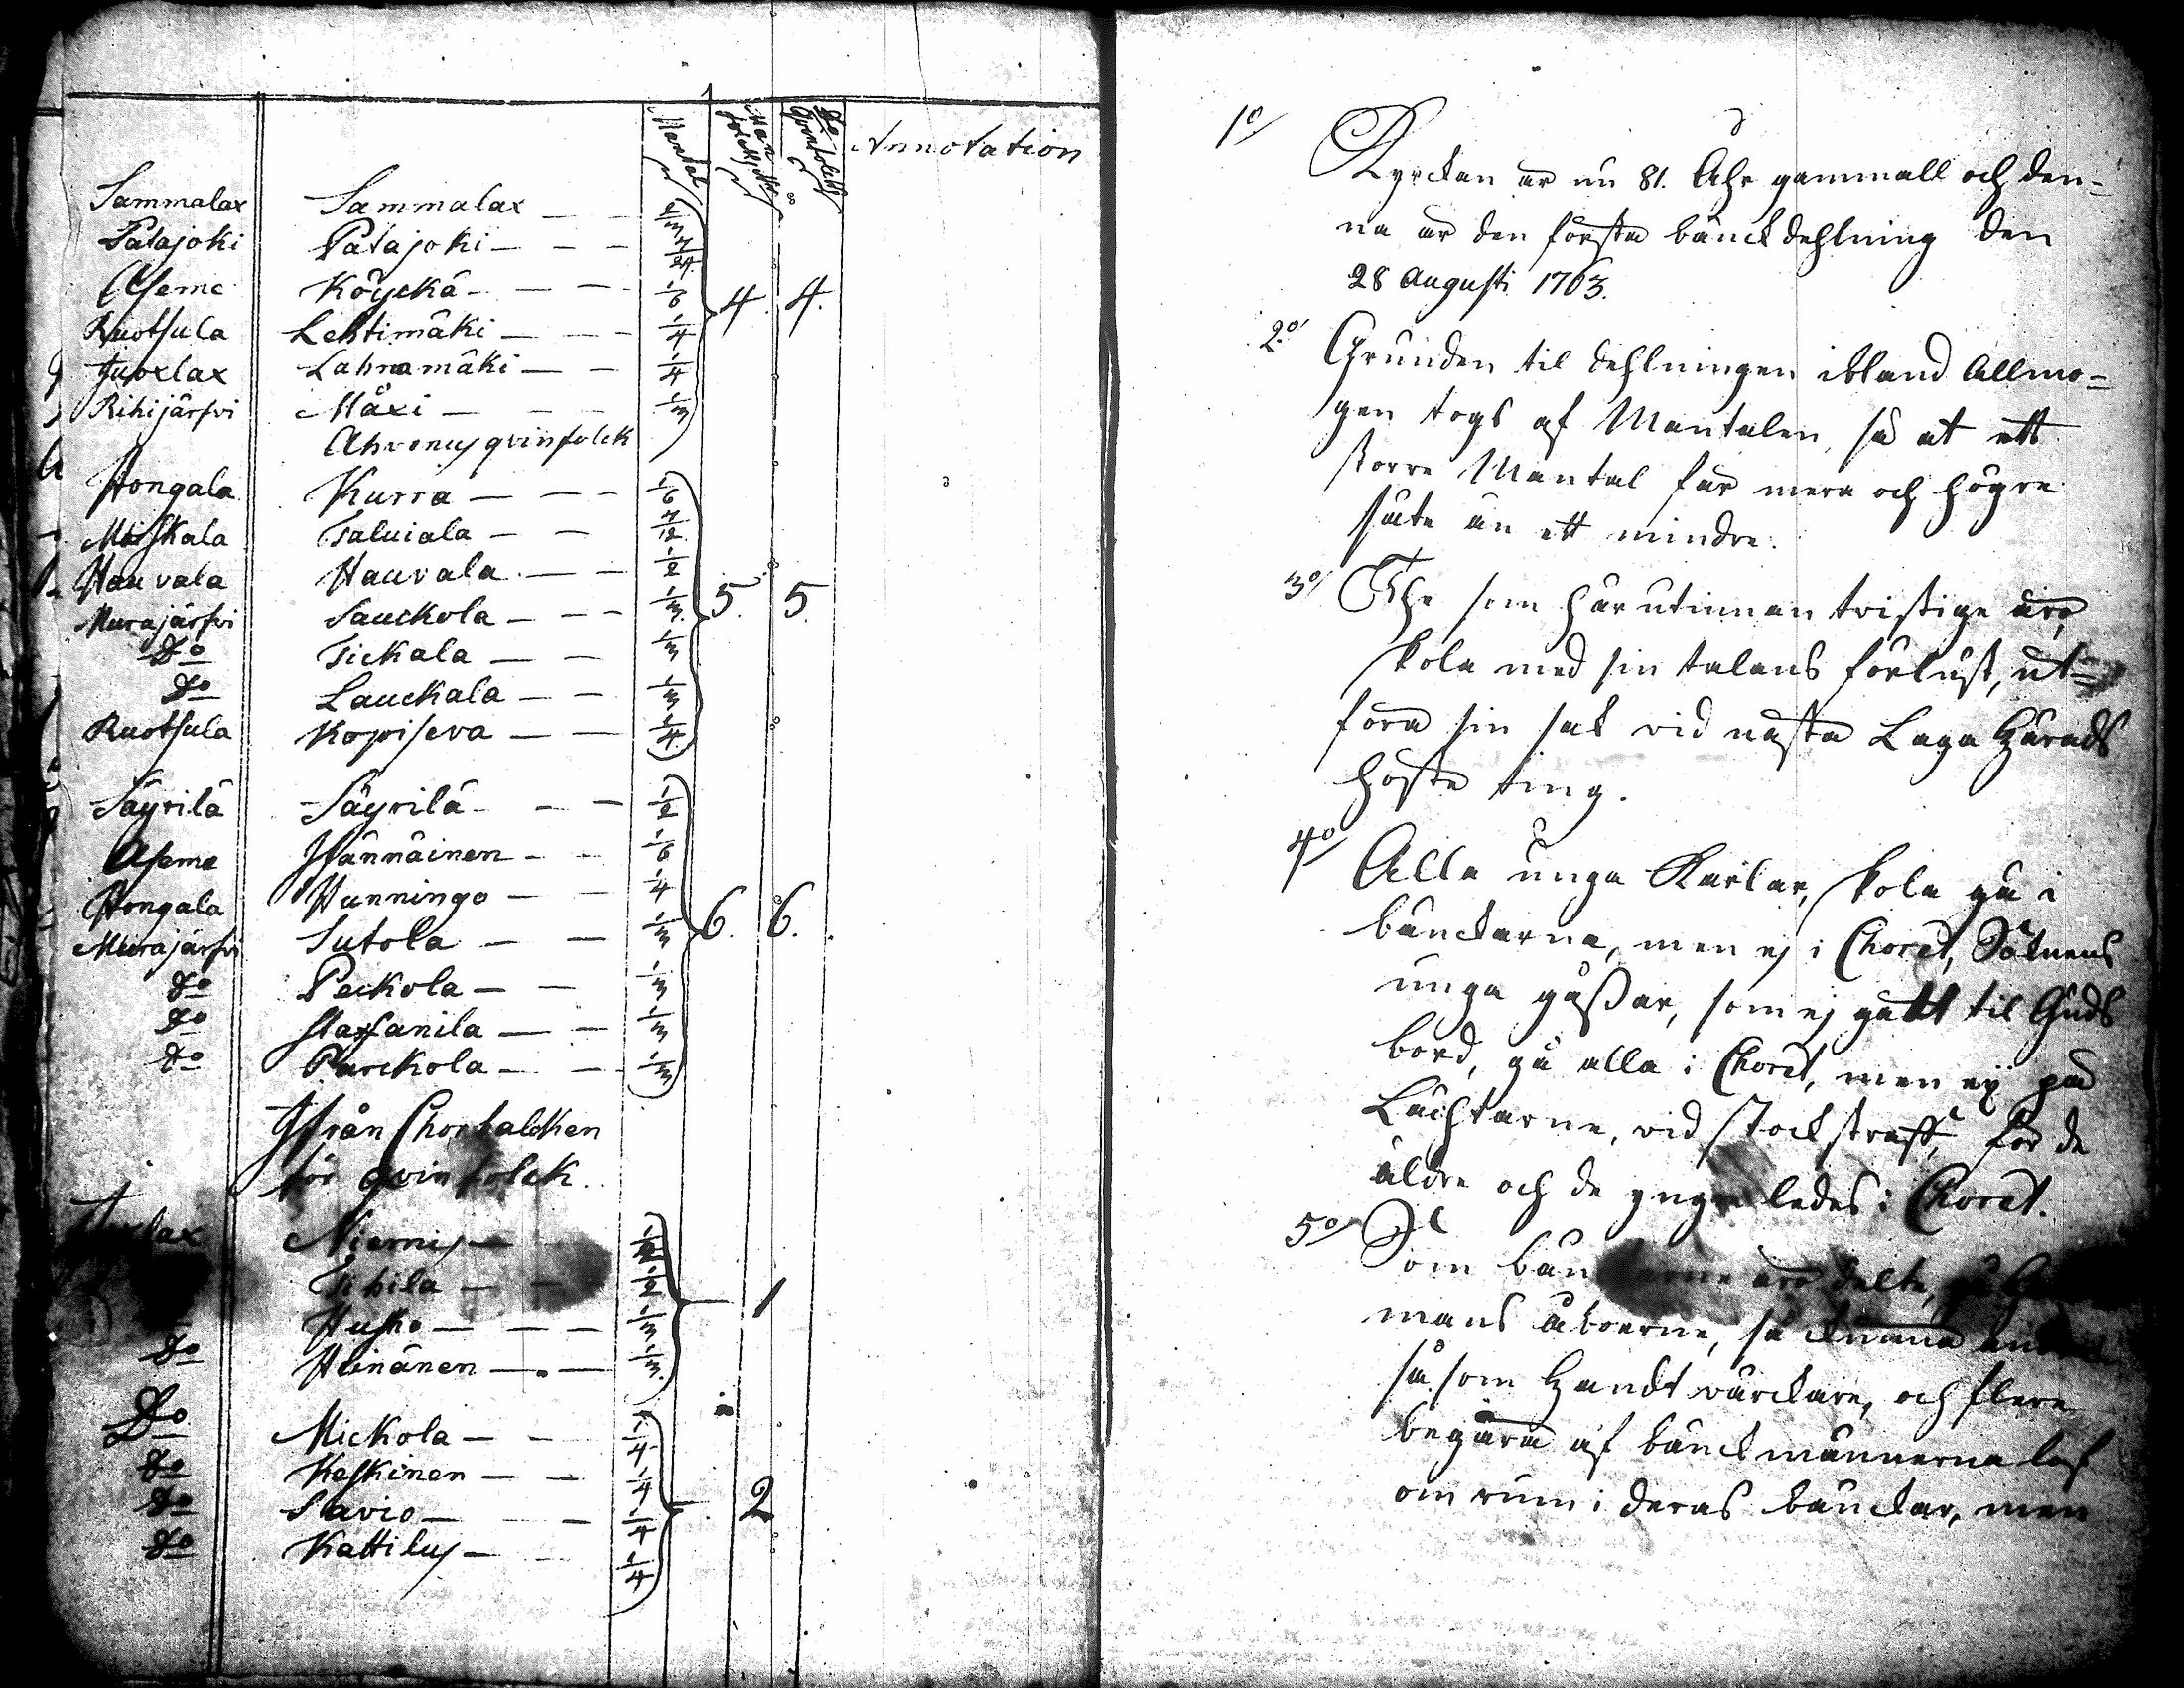 Mantal
Do
Qvinfolck
Annotation
Sammalax Sammalax — —
Patajoki Patajoki — — — 7/24.
Aseme Köyckä — — — 1/6 4. 4.
Ruotsula Lehtimäki — — — 1/4
Juvxlax Lahnamäki — — 1/4
Rihijärfvi Mäxi — — — 1/3
Ahvenus qvinfolck
Hongala Kurra — — — 1/6
Moiskala Taluiala — — 7/12
Hauvala Hauvala — — 1/2
Murajärfvi Sauckola — — — 1/3. 5. 5.
Do Tickala — — 1/3
Do Lauckala — — 1/3
Ruotsula Kopiseva — — 1/4
Säyrilä Säyrilä — — — 1/2
Aseme Hännäinen — — 1/6
Hongala Hunningo — — 1/4
Murajärfvi Sutola — — 1/3 6. 6.
Do Peckola — — 1/3
Do Staffanila — — 1/3
Do Purckola — — 1/3
Ifrån Chorbalcken
för qvinfolck.
Niemis —
Tihila — — 1/2
Husko — — — 1/3 1
Do Heinänen — — 1/3.
Do Mickola — — 1/4
Do Keskinen — — 1/4
Do Slavio — — 1/4 2
Do Kattilus — — 1/4
1o/ Kyrckan är nu 81. Åhr gammall och den=
na är den första bänckdehlning den
28 Augusti 1763.
2o/ Grunden til dehlningen ibland Allmo=
gen togs af Mantalen, så at ett
större Mantal får mera och högre
säte än ett mindre.
3o/ The som härutinnan tvistige äro,
skola med sin talans förlust, ut=
föra sin sak vid nästa Laga Härads
höste ting.
4o/ Alla unga Karlar, skola gå i
bänckarna, men ej i Choret,
unga gåssar, som ej gått til Guds
bord, gå alla i Choret, men ej på
Lächtarne, vid stockstraff, för de
äldre och de yngre ledes i Choret.
5o/ Som bänckarne äro delte, på
mans åboerne, så kunna
så som Handtvärckare, och flere
begära af bänckmännerna lof
om rum i deras bänckar, men